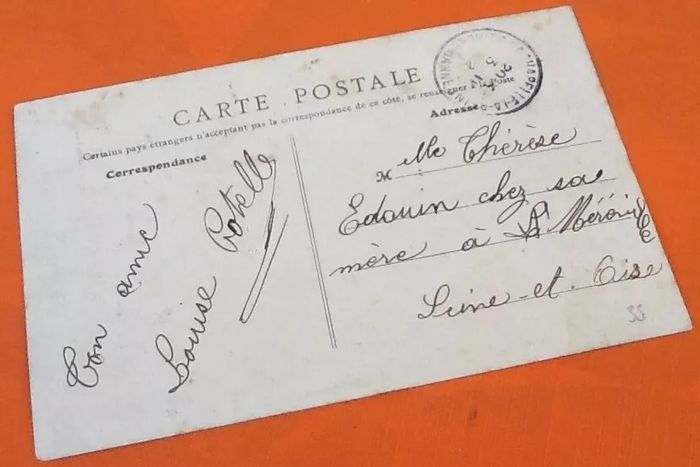 CARTE POSTALE
Certains pays étrangers n'acceptant pas la correspondance de ce côté, se renseigner à la Poste
Correspondance
Adresse
Ton amie
Louise
M Mlle Thérèse
Edouin chez sa
mère à
Seine-et-Oise
35